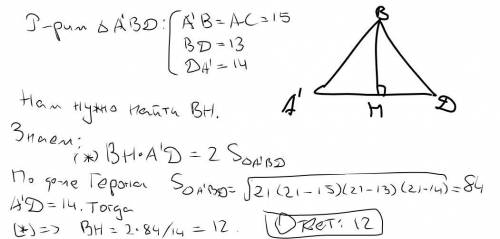 Р-рим △A'BD: { A'B = AC = 15
BD = 13
DA' = 14
B
A'
H
D
Нам нужно найти BH.
Знаем:
(*) BH·A'D = 2 S△A'BD
По ф-ле Герона S△A'BD = √21(21-15)(21-13)(21-14) = 84
A'D = 14. Тогда
(*) => BH = 2·84/14 = 12. Ответ: 12